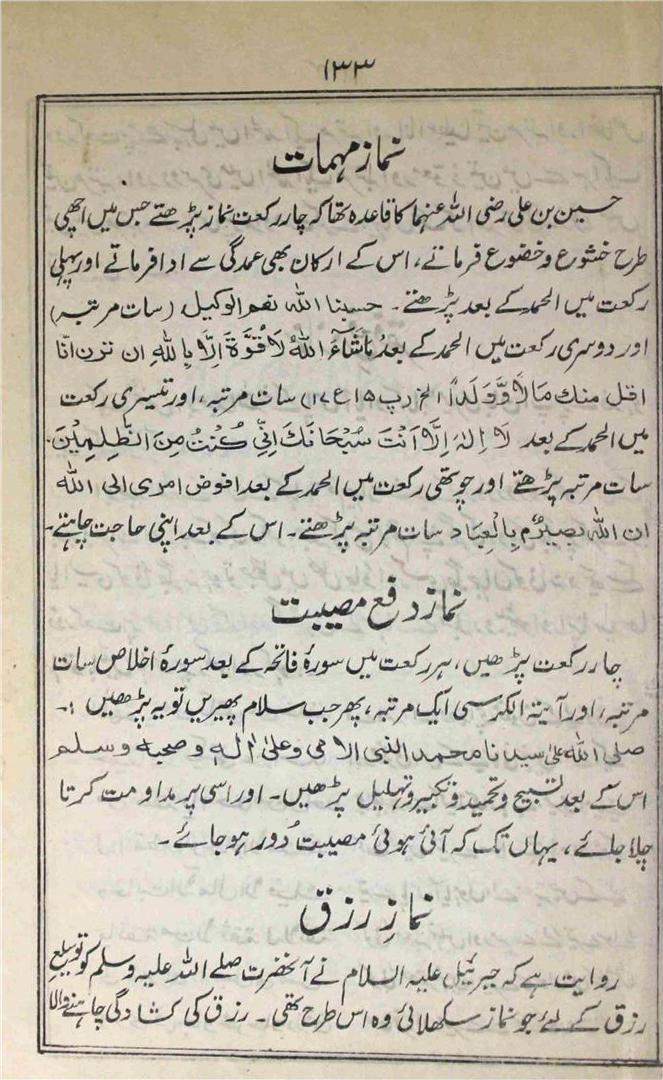 ۱۳۳
نماز مہمات
حسین بن علی رضی اللہ عنہما کا قاعدہ تھا کہ چار رکعت نماز پڑھتے جس میں اچھی
طرح خشوع و خضوع فرماتے، اس کے ارکان بھی عمدگی سے ادا فرماتے اور پہلی
رکعت میں الحمد کے بعد پڑھتے۔ حسبنا اللہ نعم الوکیل (سات مرتبہ)
اور دوسری رکعت میں الحمد کے بعد مَاشَآءَ اللہُ لَا قُوَّةَ اِلَّا بِاللہِ ان ترن انا
اقل منك مَالًا وَّوَلَدًا الخ (پ ۱۵ ع ۱۷) سات مرتبہ، اور تیسری رکعت
میں الحمد کے بعد لَا اِلٰہَ اِلَّا اَنْتَ سُبْحَانَكَ اِنِّیْ کُنْتُ مِنَ الظّٰلِمِیْنَ۔
سات مرتبہ پڑھتے اور چوتھی رکعت میں الحمد کے بعد افوض امری الی اللہ
ان اللہ بصیرٌم بِالْعِبَاد سات مرتبہ پڑھتے۔ اس کے بعد اپنی حاجت چاہتے۔
نماز دفع مصیبت
چار رکعت پڑھیں، ہر رکعت میں سورۂ فاتحہ کے بعد سورۂ اخلاص سات
مرتبہ، اور آیتہ الکرسی ایک مرتبہ، پھر جب سلام پھیریں تو یہ پڑھیں :۔
صلی اللہ علیٰ سیدنا محمد النبی الامی وعلیٰ اٰلہٖ وصحبہ وسلم
اس کے بعد تسبیح و تحمید و تکبیر و تہلیل پڑھیں۔ اور اسی پر مداومت کرتا
چلا جائے، یہاں تک کہ آئی ہوئی مصیبت دُور ہو جائے۔
نمازِ رزق
روایت ہے کہ جبرئیل علیہ السلام نے آنحضرت صلے اللہ علیہ وسلم کو توسیع
رزق کے لئے جو نماز سکھلائی وہ اس طرح تھی۔ رزق کی کشادگی چاہنے والا